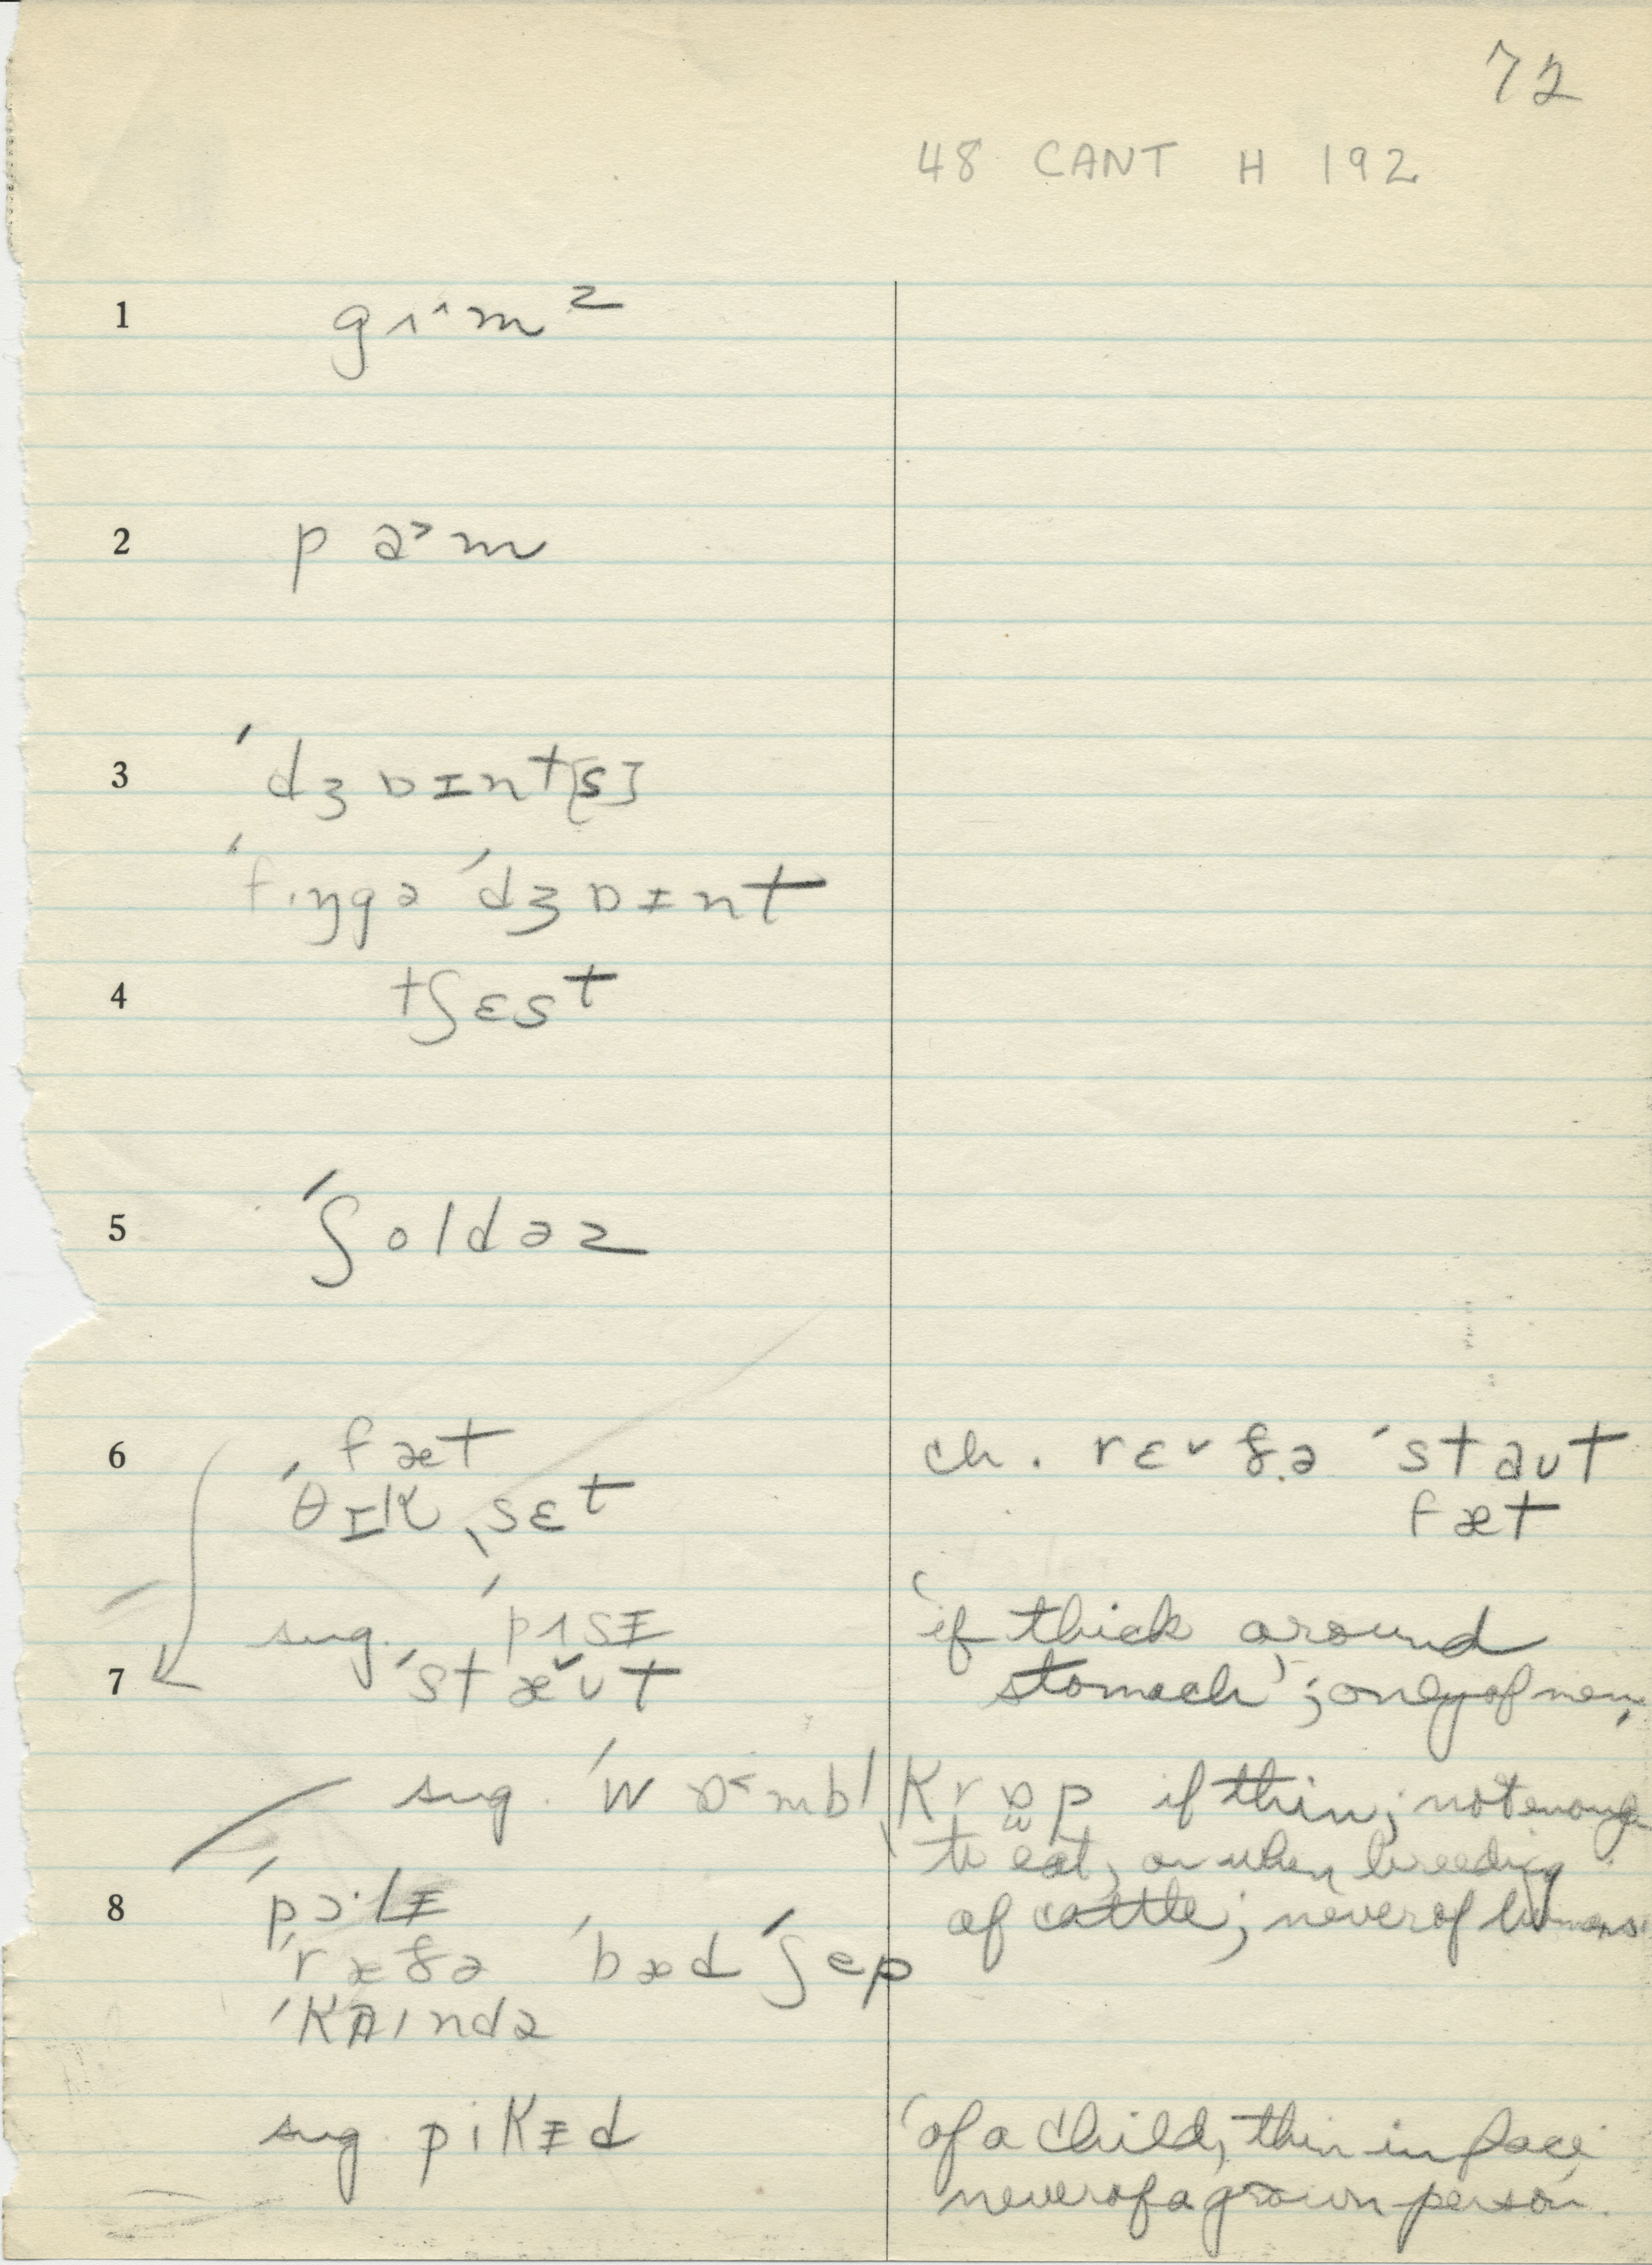 72
48 CANT H 192
1 gʌ^mz
2 pa˃m
3 ˈdʒɒɪnt[s]
ˈfɪŋgə ˈdʒɒɪnt
4 tʃɛst
5 ˈʃoldəz
6 fæt ch. rɛ˅ðə ˈstaʊt
ˈθɪkˌsɛt fæt
sug. ˈpʌsɪ̵ 'if thick around
7 ˈstæ˅ʊt stomach'; only of men.
sug. ˈwɒ˂mbl ˌkrɒ̈p if thin; not enough
to eat, or when breeding
8 ˈpɔ·lɪ̵ of cattle; never of humans
ˈræðə ˈbæd ˈʃep
ˈkaɪndə
sug. pikɪ̵d 'of a child, thin in face
never of a grown person.